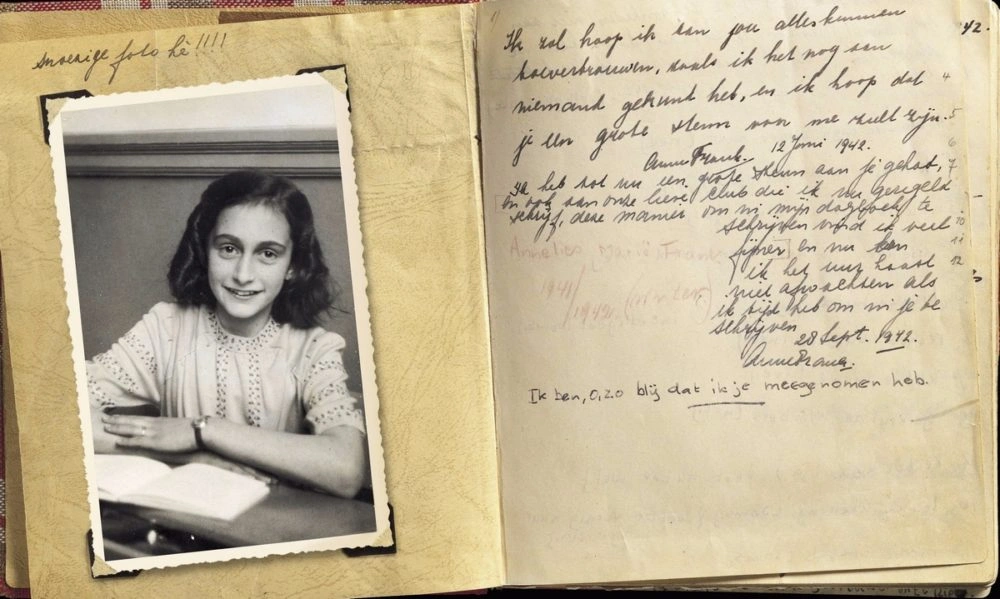 snoezige foto hè!!!!
Ik zal hoop ik aan jou alles kunnen
42.
toevertrouwen, zoals ik het nog aan
niemand gekunt heb, en ik hoop dat
4
je een grote steun voor me zult zijn.
5
Anne Frank. 12 Juni 1942.
6
Ik heb tot nu een grote steun aan je gehad,
7
en ook aan onze lieve club die ik nu geregeld
schrijf, deze manier om in mijn dagboek te
schrijven vind ik veel
10
fijner en nu kan
11
ik het uur haast
12
niet afwachten als
ik tijd heb om in je te
schrijven
28 Sept. 1942.
Anne Frank.
Annelies Marie Frank
1941/
1942
Ik ben, o, zo blij dat ik je meegenomen heb.